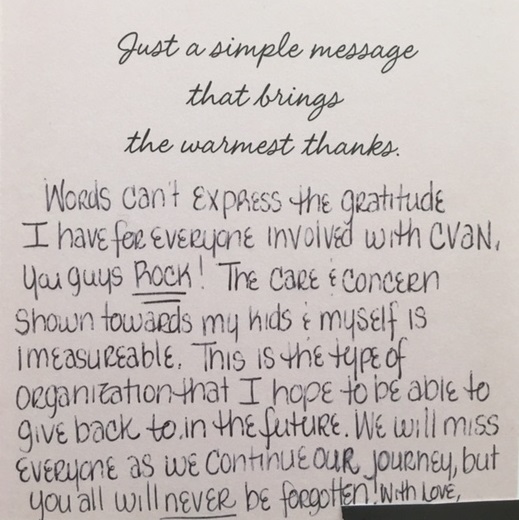 Just a simple message
that brings
the warmest thanks.
Words can't express the gratitude
I have for everyone involved with CVAN.
You guys ROCK! The care & concern
shown towards my kids & myself is
imeasureable. This is the type of
organization that I hope to be able to
give back to in the future. We will miss
everyone as we continue our journey, but
you all will never be forgotten! With Love,